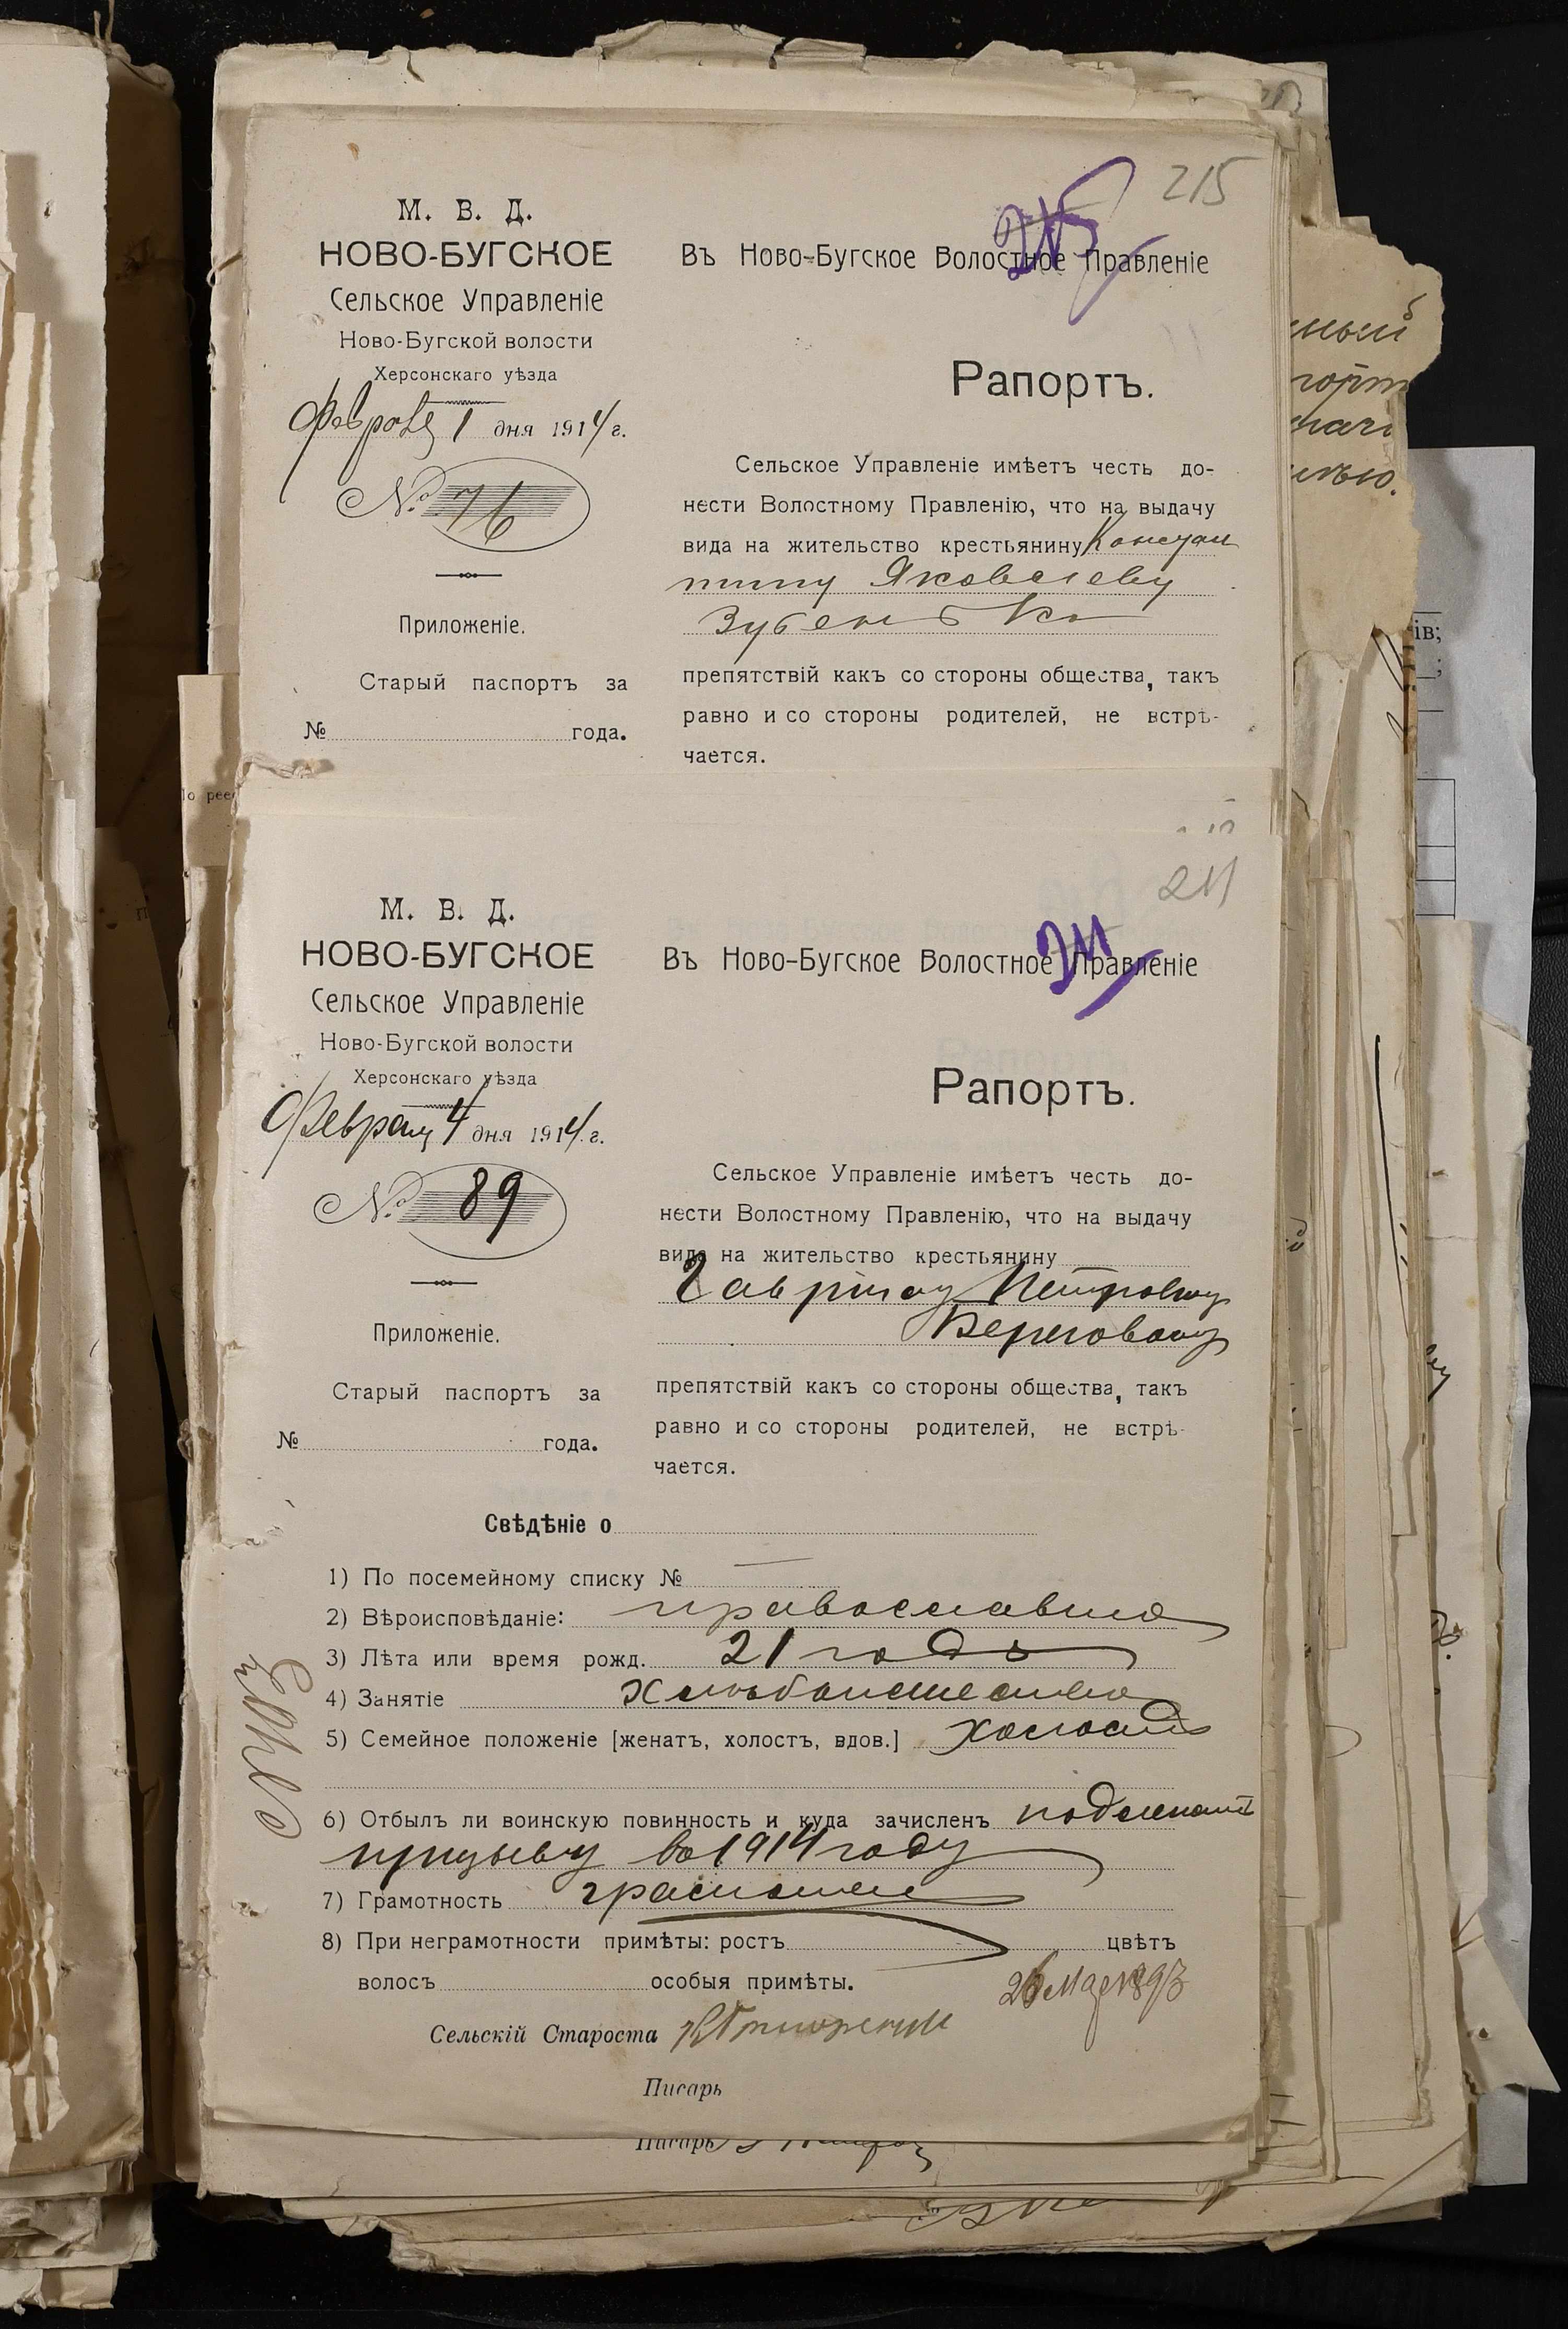 215
М. В. Д.
НОВО-БУГСКОЕ
Сельское Управленіе
Ново-Бугской волости
Херсонскаго уѣзда
1 дня 1914 г.
№ 76
Приложеніе.
Старый паспортъ за
№ года.
215
Въ Ново-Бугское Волостное Правленіе
Рапортъ.
Сельское Управленіе имѣетъ честь до-
нести Волостному Правленію, что на выдачу
вида на жительство крестьянину Констан
тину Яковлеву
Зубенько
препятствій какъ со стороны общества, такъ
равно и со стороны родителей, не встрѣ-
чается.
211
М. В. Д.
НОВО-БУГСКОЕ
Сельское Управленіе
Ново-Бугской волости
Херсонскаго уѣзда
Февраля 4 дня 1914 г.
№ 89
Приложеніе.
Старый паспортъ за
№ года.
211
Въ Ново-Бугское Волостное Правленіе
Рапортъ.
Сельское Управленіе имѣетъ честь до-
нести Волостному Правленію, что на выдачу
вида на жительство крестьянину
Гаврилу Петровому
Береговому
препятствій какъ со стороны общества, такъ
равно и со стороны родителей, не встрѣ-
чается.
Свѣдѣніе о
1) По посемейному списку № —
2) Вѣроисповѣданіе: православное
3) Лѣта или время рожд. 21 годъ
4) Занятіе Хлѣбопашество
5) Семейное положеніе [женатъ, холостъ, вдов.] холостъ
6) Отбылъ ли воинскую повинность и куда зачисленъ подлежитъ
призыву въ 1914 году
7) Грамотность грамотный
8) При неграмотности примѣты: ростъ цвѣтъ
волосъ особыя примѣты.
26 1893
Сельскій Староста
Писарь
Писарь